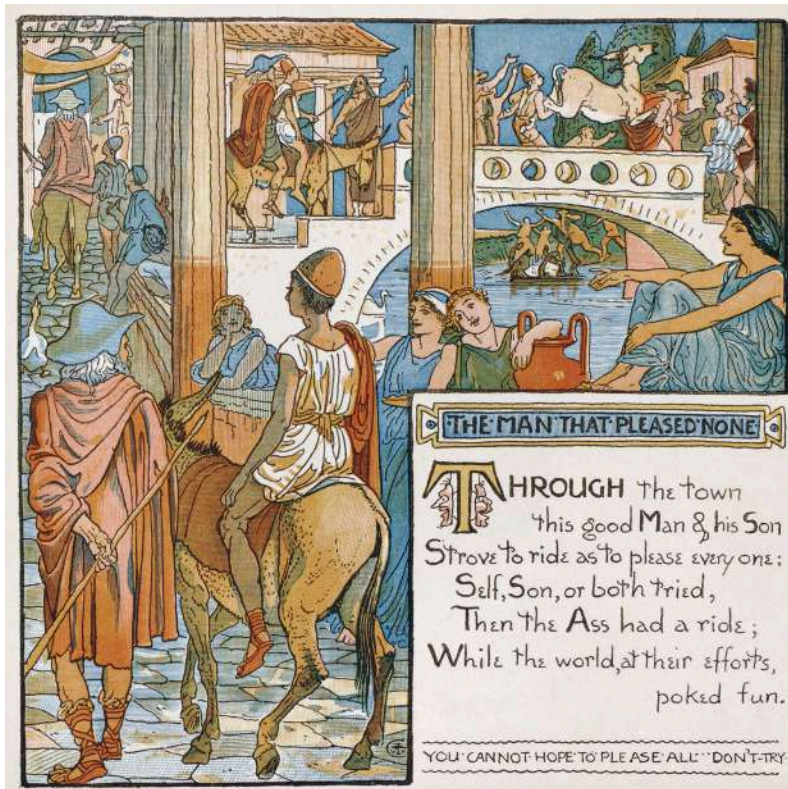 THE MAN THAT PLEASED NONE
THROUGH the town
this good Man & his Son
Strove to ride as to please every one:
Self, Son, or both tried,
Then the Ass had a ride;
While the world, at their efforts,
poked fun.
YOU CANNOT HOPE TO PLEASE ALL---DON'T TRY